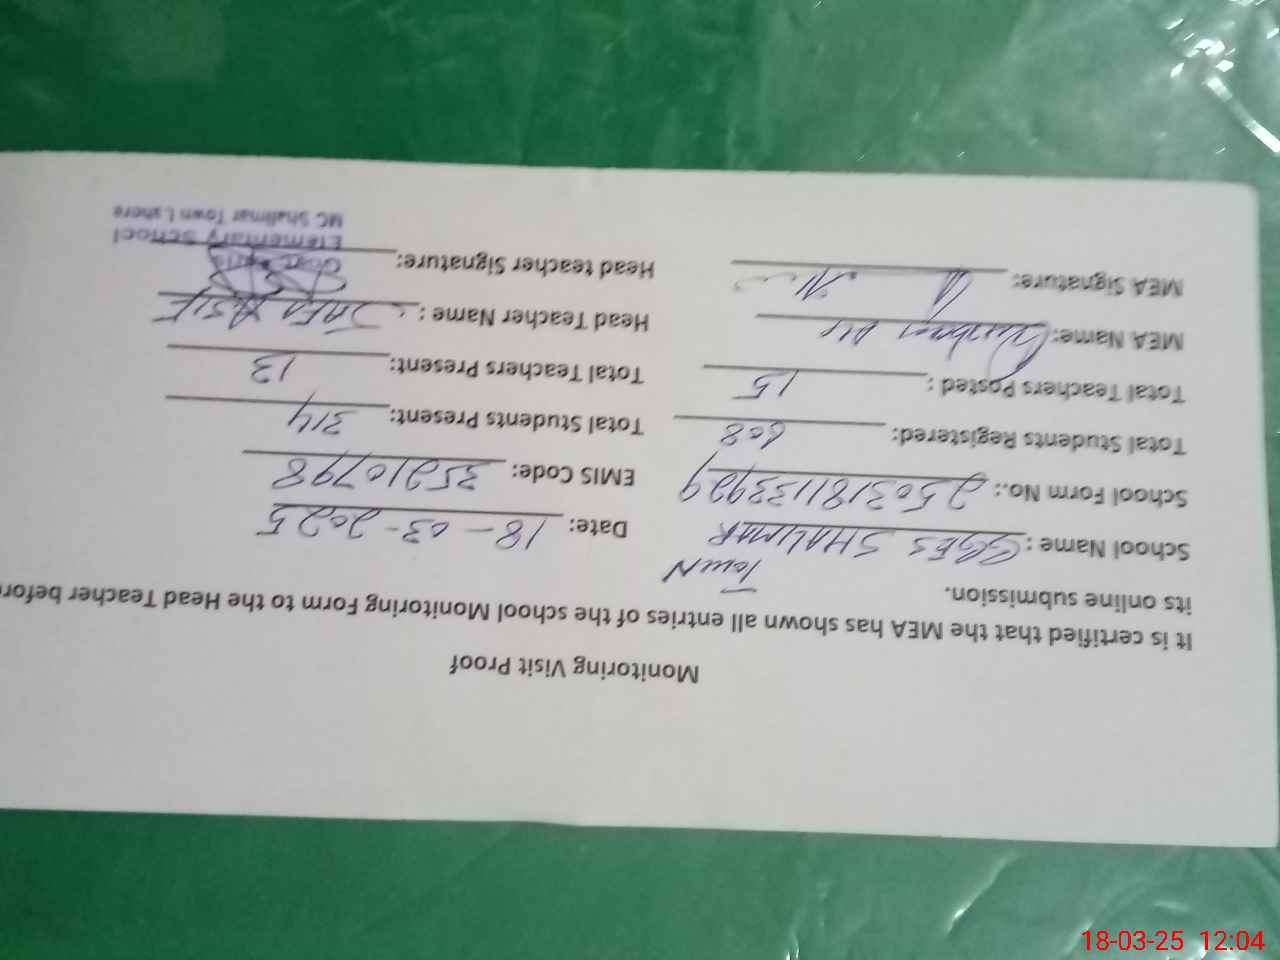 Monitoring Visit Proof
It is certified that the MEA has shown all entries of the school Monitoring Form to the Head Teacher before
its online submission.
Town
School Name : GGES SHALIMAR Date: 18-03-2025
School Form No.: 2503181133929 EMIS Code: 35210798
Total Students Registered: 608 Total Students Present: 314
Total Teachers Posted : 15 Total Teachers Present: 13
MEA Name: Head Teacher Name : ASIF
MEA Signature: Head teacher Signature:
Elementary School
MC Shalimar Town Lahore
18-03-25 12:04